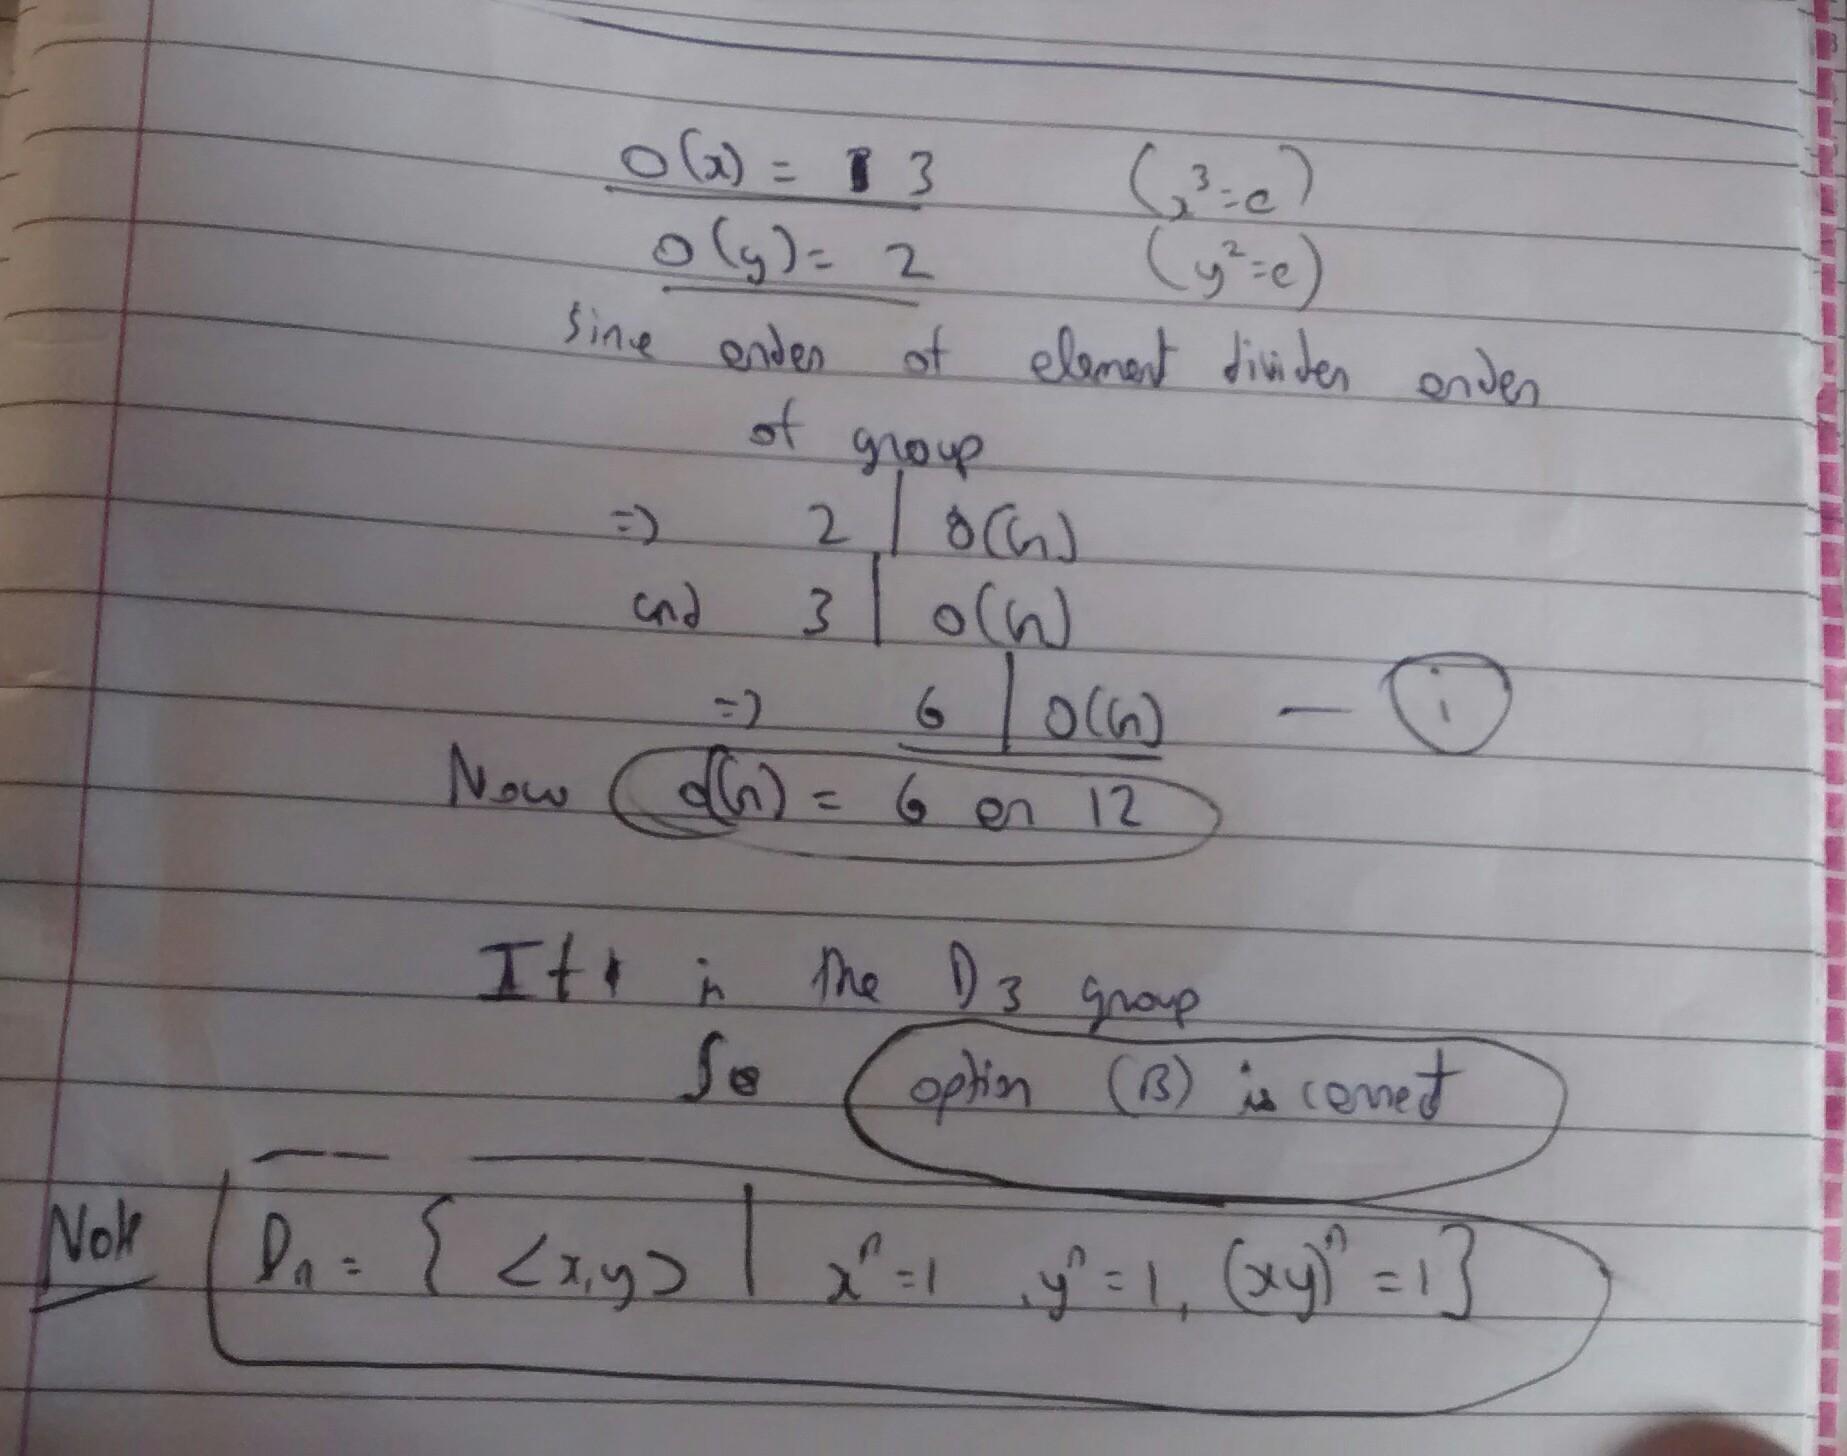 O(x) = 3 (x³=e)
O(y) = 2 (y²=e)
Since order of element divides order
of group
=> 2 | O(G)
and 3 | O(G)
=> 6 | O(G) — (i)
Now O(G) = 6 or 12
It is the D3 group
So option (B) is correct
Note Dn = { <x,y> | xⁿ=1 , yⁿ=1, (xy)ⁿ=1}